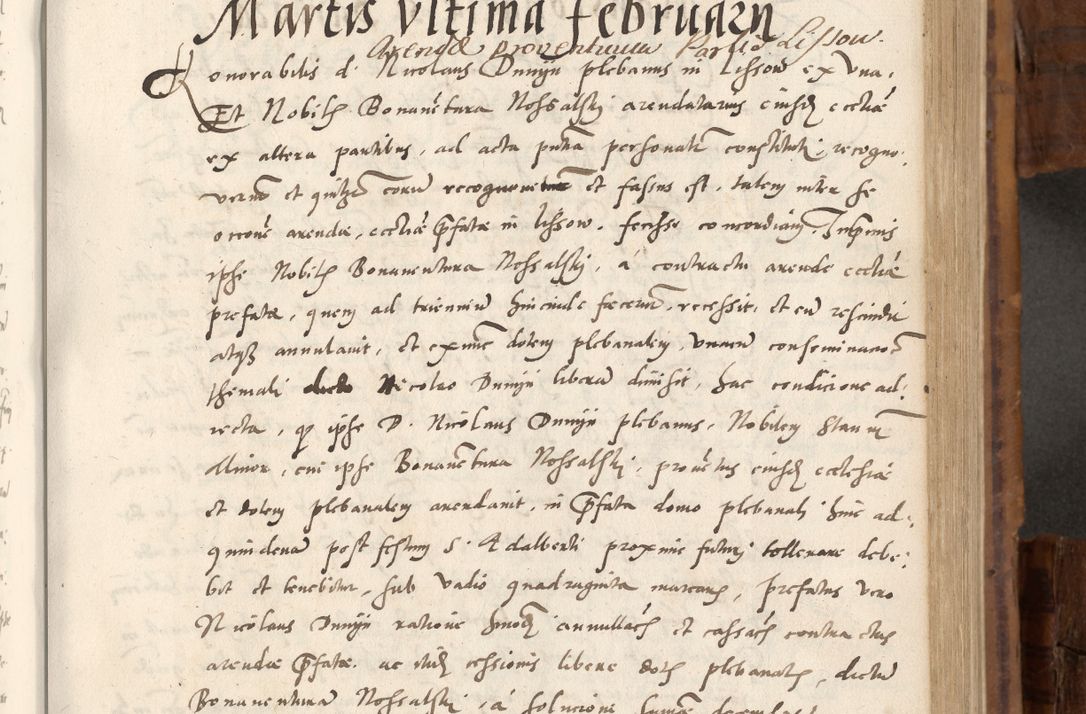 Martis Vltima februarii
Arendæ proventuum Par Lissow.
Honorabilis d. Nicolaus Dunijn plebanus in Lissow ex vna,
Et Nobilis Bonauētura Nossalskj arendatarius eiusd ecctiæ
ex altera partibus, ad acta pntā personatr constituti, recogno:
verūt et quilibet eorū recognouit et fassus est, talem inter se
occone arendæ, ecctiæ pfatæ in Lissow, fecisse concordiam. Inprimis
ipse Nobilis Bonauentura Nossalskj, á contractu arende ecctiæ
prefatæ, quem ad trienniū hinc inde fecerūt, recessit, et eū rescindit
atqз annulauit, et ex nūc dotem plebanalem, vnacū conseminacōe
Hiemali dicto Nicolao Dunijn liberā dimisit, hac condicione ad:
recta, qz ipse D. Nicolaus Dunijn plebanus, Nobilem Stan m
Minor, cui ipse Bonauētura Nossalskj, prouētus eiusd ecclesiæ
et dotem plebanalem arendauit, in pfata domo plebanali hinc ad
quindenā post festum S. Adalberti proxime futurj tollerare debe:
bit et tenebitur, sub vadio quadraginta marcarū, prefatus vero
Nicolaus Dunijn ratione hmodi annullacīs et cassacīs contractus
arendæ pfatæ. ac itid cessionis libere dotis plebanalis, dictū
Bonauenturam Nossalskj, á solucione